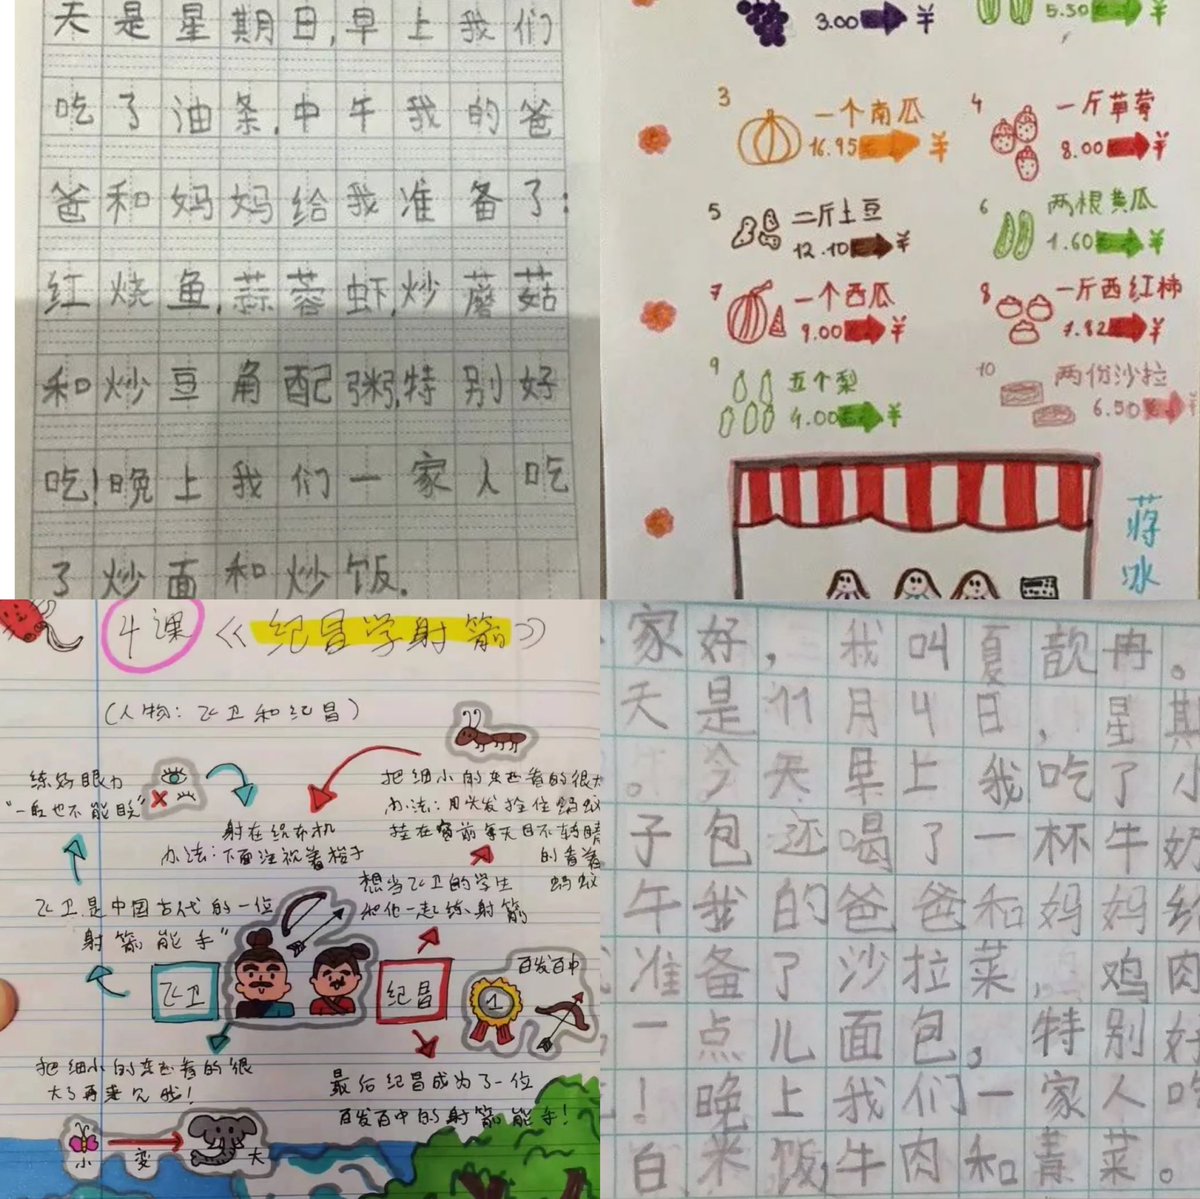 天是星期日,早上我们
吃了油条,中午我的爸
爸和妈妈给我准备了:
红烧鱼,蒜蓉虾,炒蘑菇
和炒豆角配粥,特别好
吃!晚上我们一家人吃
了炒面和炒饭.
3.00 ¥
5.30 ¥
3 一个南瓜
16.95元 ¥
4 一斤草莓
8.00 ¥
5 二斤土豆
12.10 ¥
6 两根黄瓜
1.60元 ¥
7 一个西瓜
9.00 ¥
8 一斤西红柿
7.82 ¥
9 五个梨
4.00元 ¥
10 两份沙拉
6.50元 ¥
蒋冰
4课《纪昌学射箭》
(人物:飞卫和纪昌)
练好眼力
"一点也不能眨"
射在织布机
办法:下面注视着梭子
把细小的东西看的很大
办法:用头发拴住蚂蚁
挂在窗前每天目不转睛
的看着
蚂蚁
想当飞卫的学生
和他一起练射箭
飞卫是中国古代的一位
射箭能手"
飞卫
纪昌
百发百中
1
把细小的东西看的很
大了再来见我!
最后纪昌成为了一位
百发百中的射箭能手!
小 变 大
家好,我叫夏歆冉。
天是11月4日,星期
。今天早上我吃了小
子包还喝了一杯牛奶
午我的爸爸和妈妈给
准备了沙拉菜,鸡肉
一点儿面包,特别好
!晚上我们一家人吃
白米饭,牛肉和青菜。